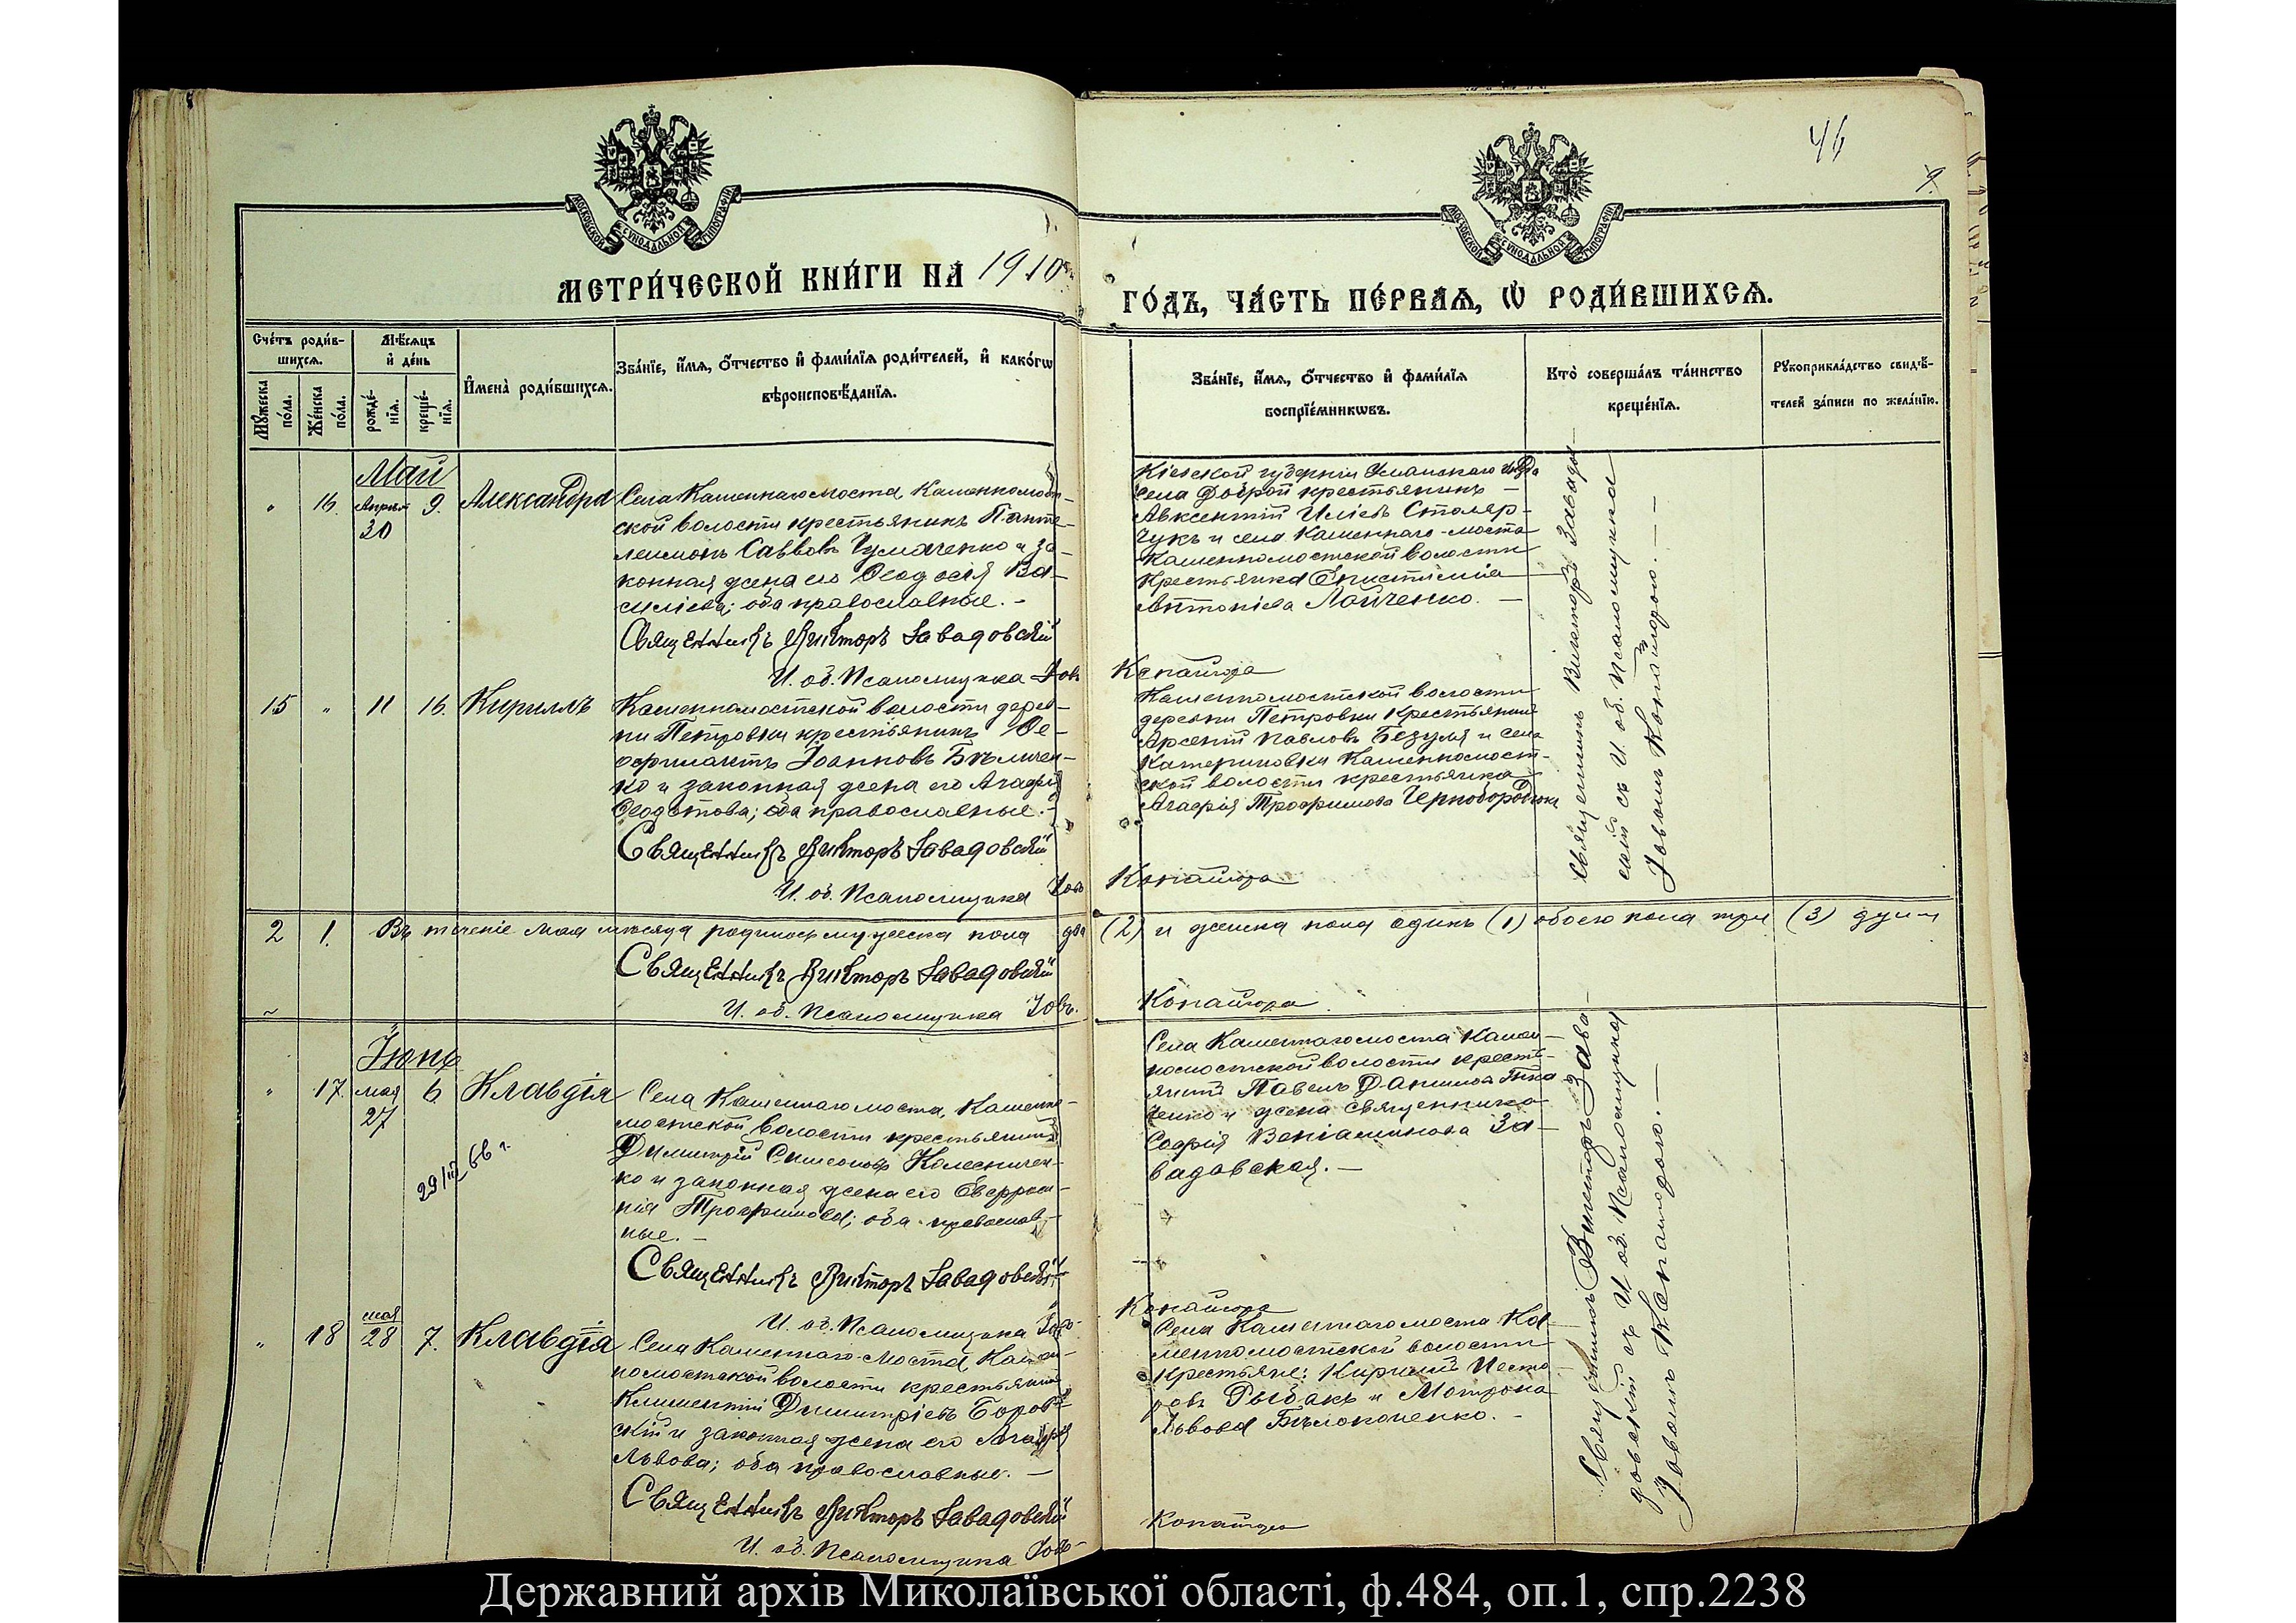 46
9.
МОСКОВСКОЙ СѴНОДАЛЬНОЙ ТИПОГРАФІИ
МОСКОВСКОЙ СѴНОДАЛЬНОЙ ТИПОГРАФІИ
МЕТРИ́ЧЕСКОЙ КНИ́ГИ НА 1910
ГО́ДЪ, ЧА́СТЬ ПЕ́РВАѦ, Ѡ РОДИ́ВШИХСѦ.
Сче́тъ роди́в-
шихсѧ.
Мꙋ́жеска по́ла.
Же́нска по́ла.
Мѣ́сѧцъ
и҆ де́нь
рожде́-
нїѧ.
креще́-
нїѧ.
И҆мена̀ роди́вшихсѧ.
Зва́нїе, и҆́мѧ, ѻ҆́тчество и҆ фами́лїѧ роди́телей, и҆ како́гѡ
вѣроисповѣ́данїѧ.
Зва́нїе, и҆́мѧ, ѻ҆́тчество и҆ фами́лїѧ
воспрїе́мникѡвъ.
Кто̀ соверша́лъ та́инство
креще́нїѧ.
Рꙋкоприкла́дство свидѣ́-
телей за́писи по жела́нїю.
Май
" 16. Апрѣля 30 9. Александра
Села Каменнагомоста, Каменномост-
ской волости крестьянинъ Панте-
леимонъ Саввовъ Чумаченко и за-
конная жена его Ѳеодосія Ва-
силіева; оба православные. -
Священникъ Викторъ Завадовскій
И. об. Псаломщика Іовъ Копайгора
Кіевской губерніи Уманскаго уѣзда
села Доброй крестьянинъ —
Авксентій Иліевъ Столяр-
чукъ и села Каменнаго-моста
Каменномостской волости
крестьянка Епистимія
Антоніева Лойченко. —
15 " 11 16. Кириллъ
Каменномостской волости дерев-
ни Петровки крестьянинъ Ѳе-
офилактъ Іоанновъ Бѣличен-
ко и законная жена его Агафія
Ѳеодотова; оба православные. -
Священникъ Викторъ Завадовскій
И. об. Псаломщика Іовъ Копайгора
Каменномостской волости
деревни Петровки крестьянинъ
Арсеній Павловъ Безуля и села
Катериновки Каменномост-
ской волости крестьянка
Агафія Трофимова
Священникъ Викторъ Завадов-
скій съ И. об. Псаломщика
Іовомъ Копайгорою. — —
2 1. Въ теченіе мая мѣсяца родилось мужеска пола два (2) и женска пола одинъ (1) обоего пола три (3) души
Священникъ Викторъ Завадовскій
И. об. Псаломщика Іовъ Копайгора
Іюнь
" 17. мая 27 6. Клавдія
Села Каменнагомоста, Каменно-
мостской волости крестьянинъ
Димитрій Симеоновъ Колесничен-
ко и законная жена его Евфроси-
нія Трофимова; оба православ-
ные. —
Священникъ Викторъ Завадовскій
И. об. Псаломщика Іовъ Копайгора
Села Каменнагомоста Камен-
номостской волости кресть-
янинъ Павелъ Даниловъ Тка-
ченко и жена священника
Софія Веніаминова За-
вадовская. —
" 18 мая 28 7. Клавдія
Села Каменнаго-Моста Камен-
номостской волости крестьянинъ
Климентій Димитріевъ Боров-
скій и законная жена его Агафія
Львова; оба православные. —
Священникъ Викторъ Завадовскій
И. об. Псаломщика Іовъ Копайгора
Села Каменнагомоста Ка-
менномостской волости
крестьяне: Кириллъ Несто-
ровъ Рыбакъ и Матрона
Львова Бѣлоконенко. -
Священникъ Викторъ Зава-
довскій съ И. об. Псаломщика
Іовомъ Копайгорою. —
Державний архів Миколаївської області, ф.484, оп.1, спр.2238